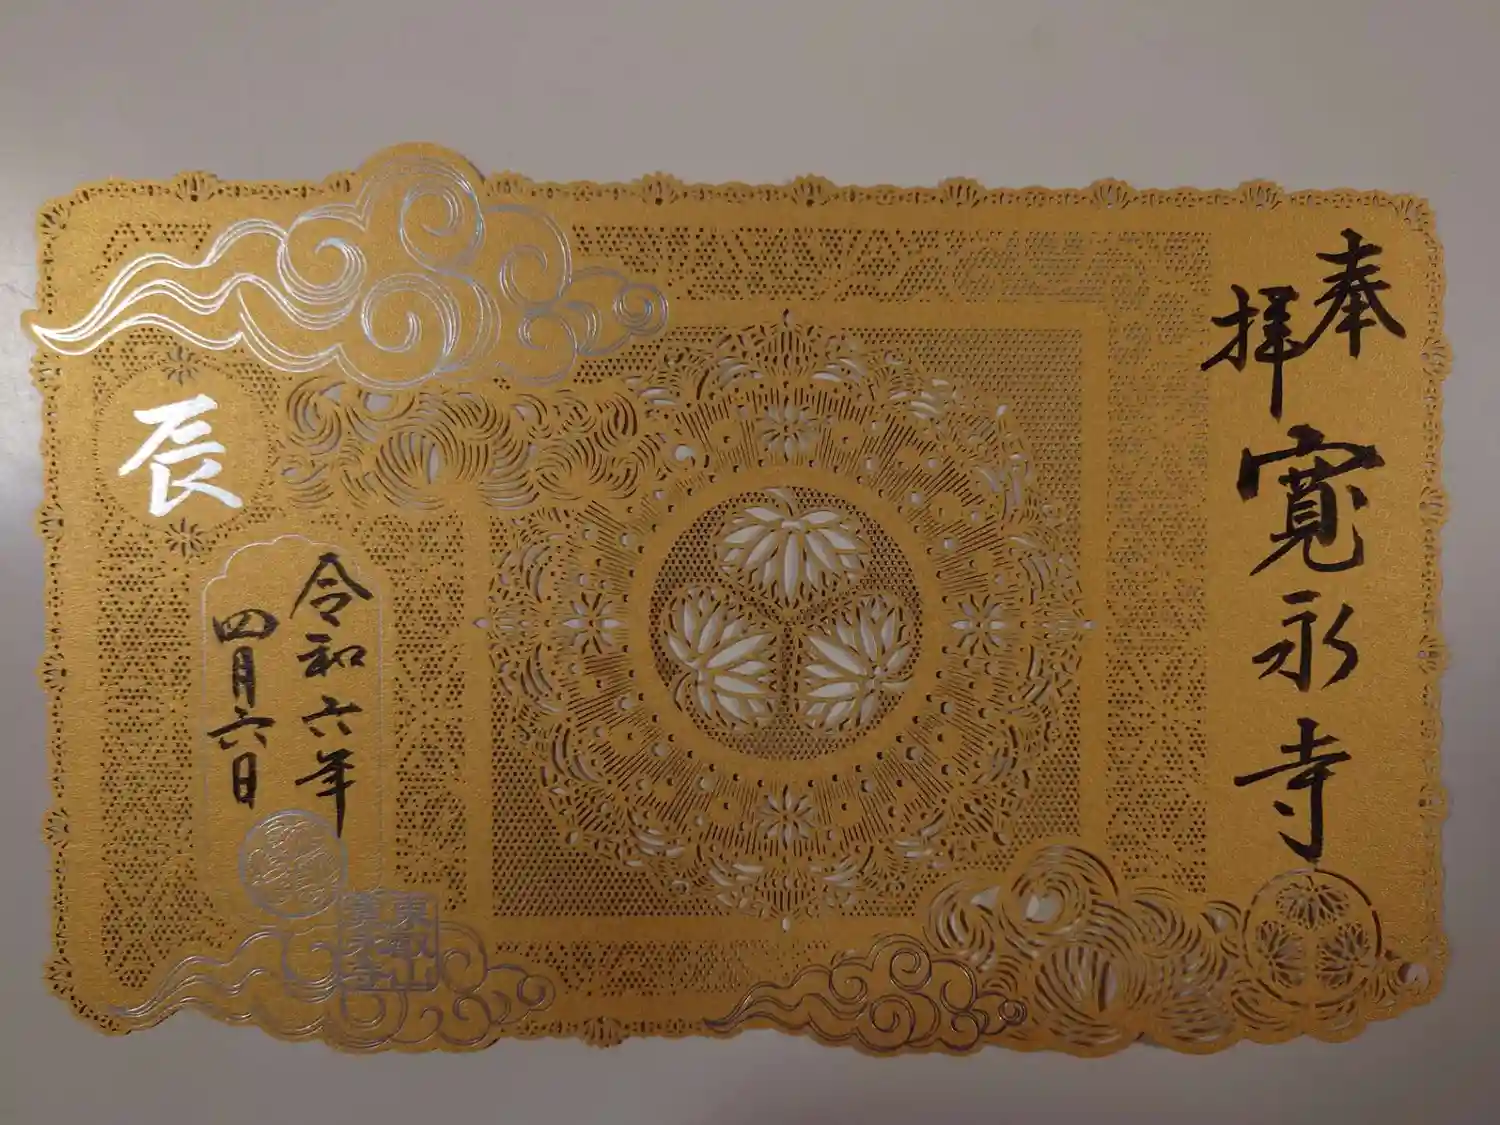 奉
拝
寛永寺
令和六年
四月六日
辰
東叡山
寛永寺